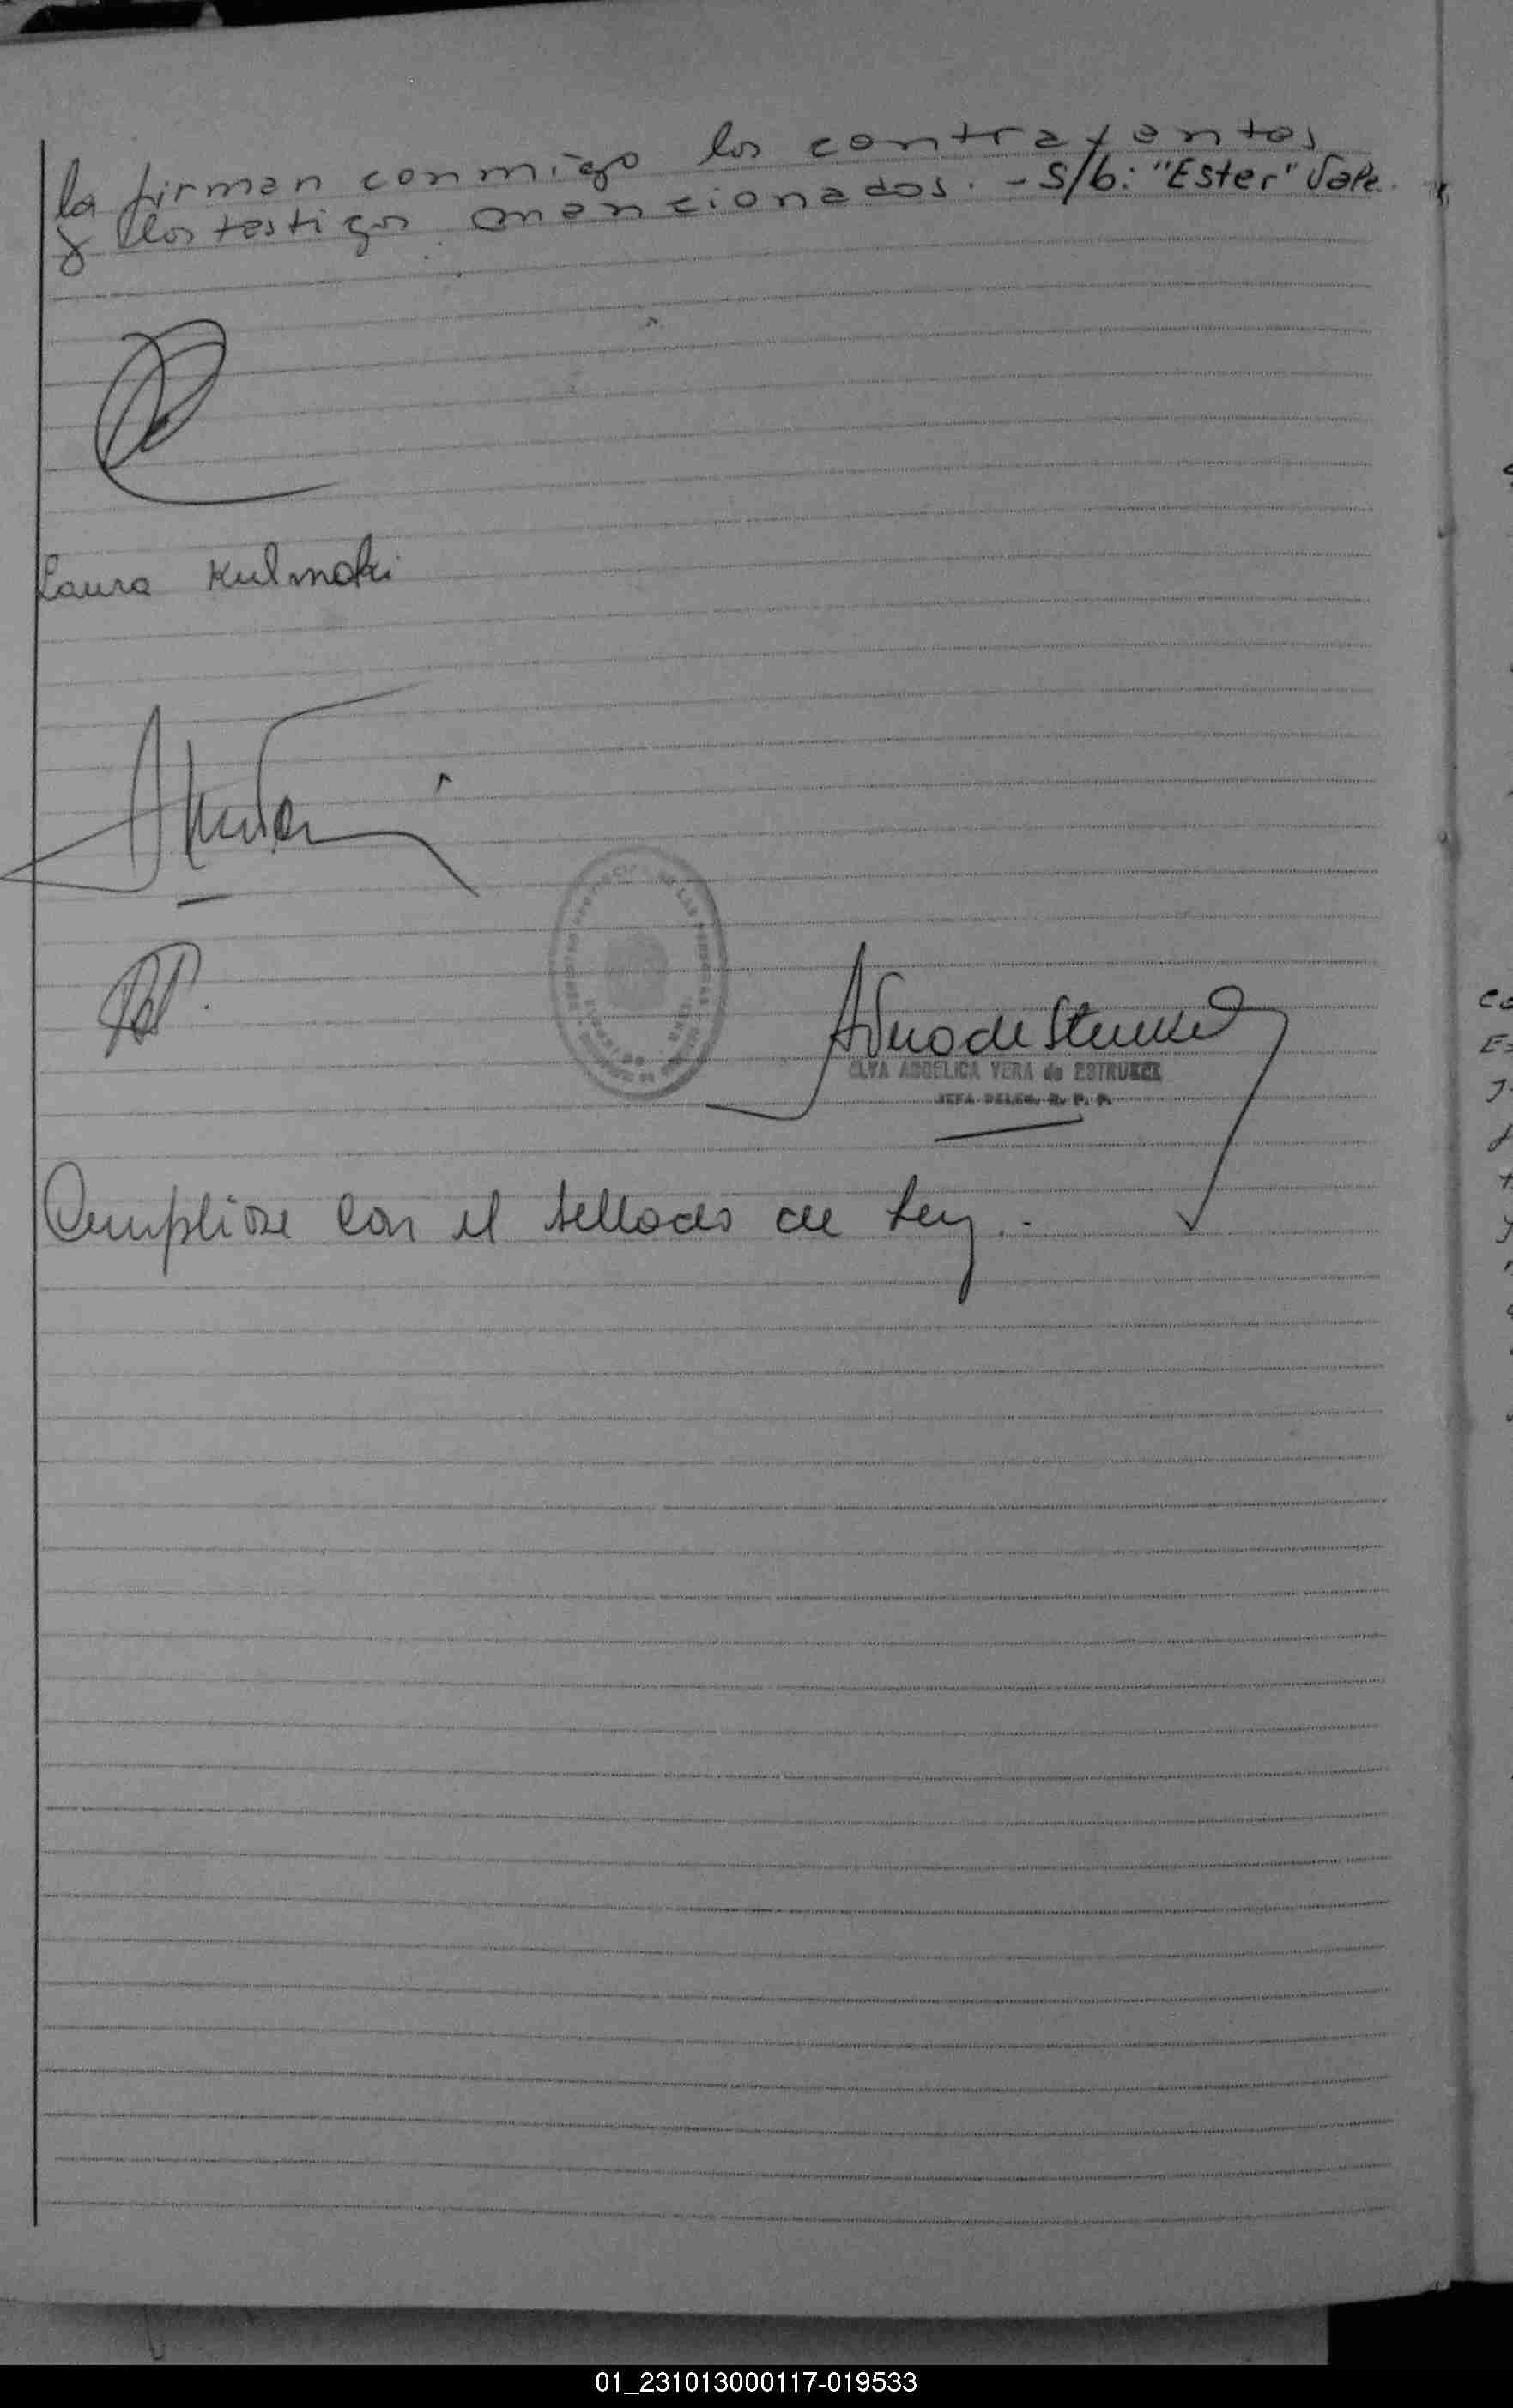 la firman conmigo los contrayentes
y los testigos mencionados. - S/b: "Ester" Vale.
Laura Kulmoki
ELVA ANGELICA VERA de ESTRUKEL
JEFA DELEG. R. P. P.
Cumpliose con el sellado de Ley.-
01_231013000117-019533